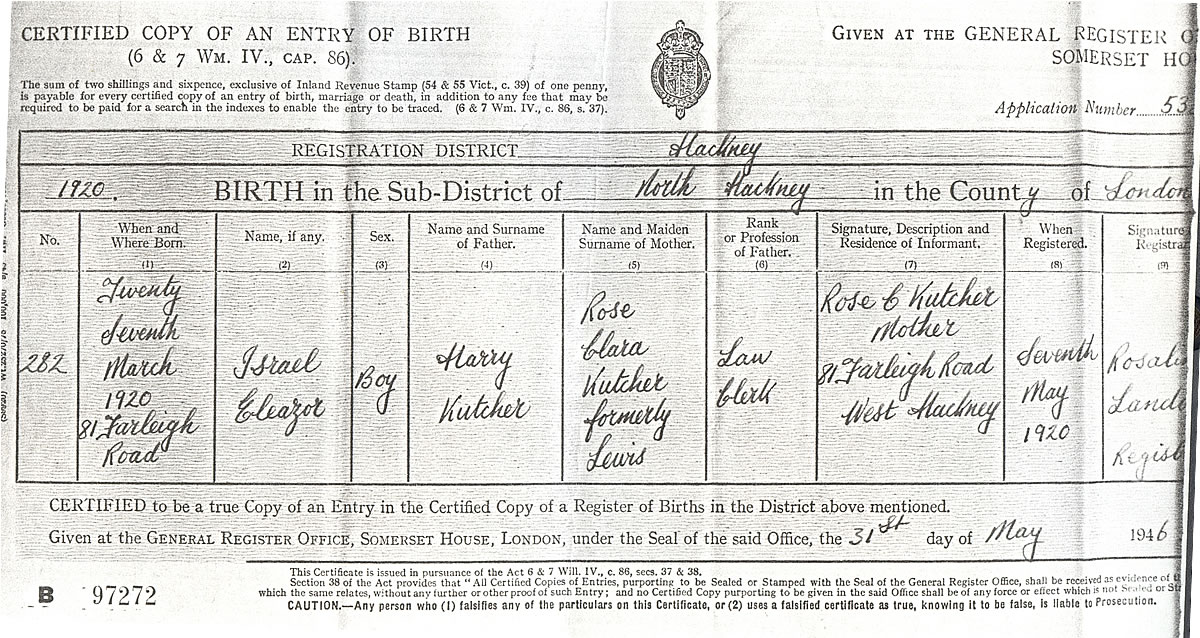 CERTIFIED COPY OF AN ENTRY OF BIRTH
(6 & 7 WM. IV., CAP. 86).
The sum of two shillings and sixpence, exclusive of Inland Revenue Stamp (54 & 55 Vict., c. 39) of one penny,
is payable for every certified copy of an entry of birth, marriage or death, in addition to any fee that may be
required to be paid for a search in the indexes to enable the entry to be traced. (6 & 7 Wm. IV., c. 86, s. 37).
GIVEN AT THE GENERAL REGISTER O
SOMERSET HO
Application Number 53
REGISTRATION DISTRICT Hackney
1920. BIRTH in the Sub-District of North Hackney in the County of London
No.
When and
Where Born.
(1)
Name, if any.
(2)
Sex.
(3)
Name and Surname
of Father.
(4)
Name and Maiden
Surname of Mother.
(5)
Rank
or Profession
of Father.
(6)
Signature, Description and
Residence of Informant.
(7)
When
Registered.
(8)
Signature
Registra
(9)
282
Twenty
Seventh
March
1920
81 Farleigh
Road
Israel
Eleazor
Boy
Harry
Kutcher
Rose
Clara
Kutcher
formerly
Lewis
Law
Clerk
Rose C Kutcher
Mother
81 Farleigh Road
West Hackney
Seventh
May
1920
Rosali
Land
Regist
CERTIFIED to be a true Copy of an Entry in the Certified Copy of a Register of Births in the District above mentioned.
Given at the GENERAL REGISTER OFFICE, SOMERSET HOUSE, LONDON, under the Seal of the said Office, the 31st day of May 1946
B 97272
This Certificate is issued in pursuance of the Act 6 & 7 Will. IV., c. 86, secs. 37 & 38.
Section 38 of the Act provides that "All Certified Copies of Entries, purporting to be Sealed or Stamped with the Seal of the General Register Office, shall be received as evidence of t
which the same relates, without any further or other proof of such Entry; and no Certified Copy purporting to be given in the said Office shall be of any force or effect which is not Sealed or St
CAUTION.—Any person who (1) falsifies any of the particulars on this Certificate, or (2) uses a falsified certificate as true, knowing it to be false, is liable to Prosecution.